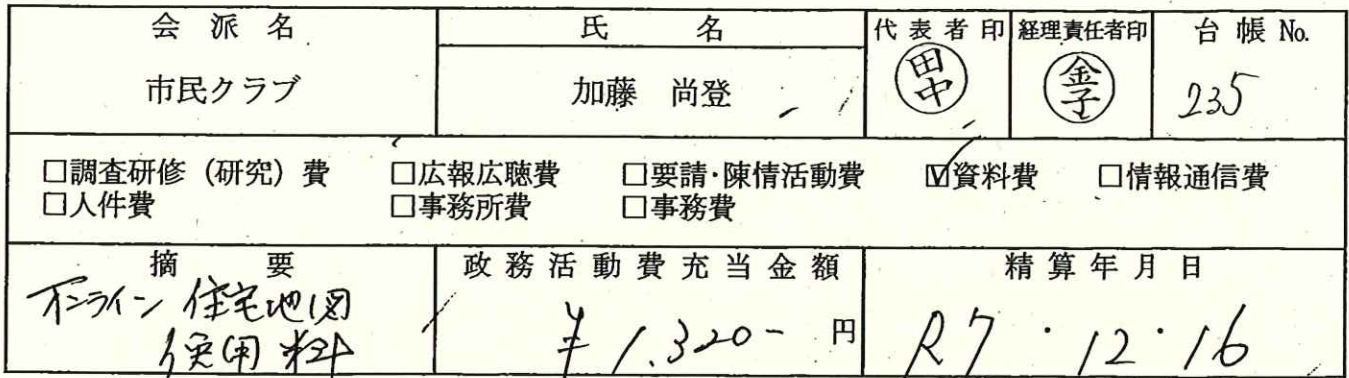 会派名 氏名 代表者印 経理責任者印 台帳No.
市民クラブ 加藤 尚登 田中 金子 235
□調査研修（研究）費 □広報広聴費 □要請・陳情活動費 ☑資料費 □情報通信費
□人件費 □事務所費 □事務費
摘要 政務活動費充当金額 精算年月日
オンライン住宅地図
使用料 ¥1,320- 円 R7・12・16